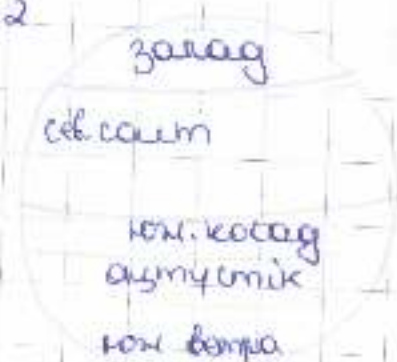 2
запад
сев. саит
юж. косад
оңтүстік
юж вотра